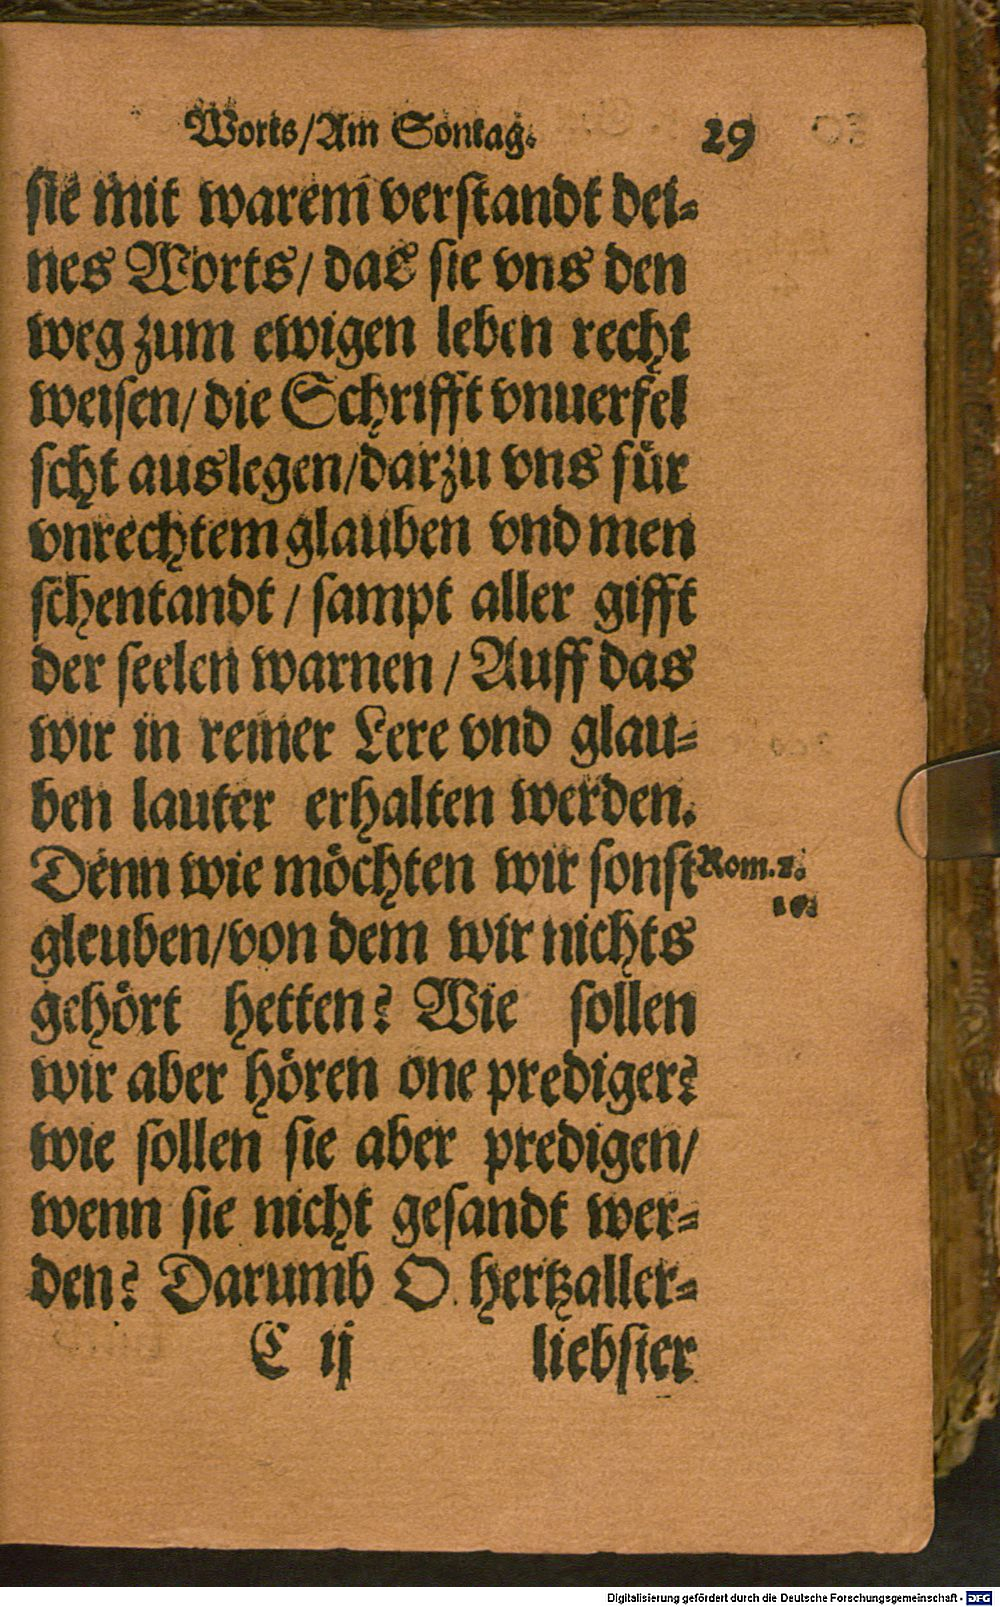 Worts/Am Sontag. 29
sie mit warem verstandt dei-
nes Worts/ das sie vns den
weg zum ewigen leben recht
weisen/ die Schrifft vnuerfel
scht auslegen/darzu vns für
vnrechtem glauben vnd men
schentandt / sampt aller gifft
der seelen warnen / Auff das
wir in reiner Lere vnd glau-
ben lauter erhalten werden.
Denn wie möchten wir sonst Rom.
gleuben/von dem wir nichts
gehört hetten? Wie sollen
wir aber hören one prediger?
wie sollen sie aber predigen/
wenn sie nicht gesandt wer-
den? Darumb O hertzaller-
C ij liebster
Digitalisierung gefördert durch die Deutsche Forschungsgemeinschaft - DFG